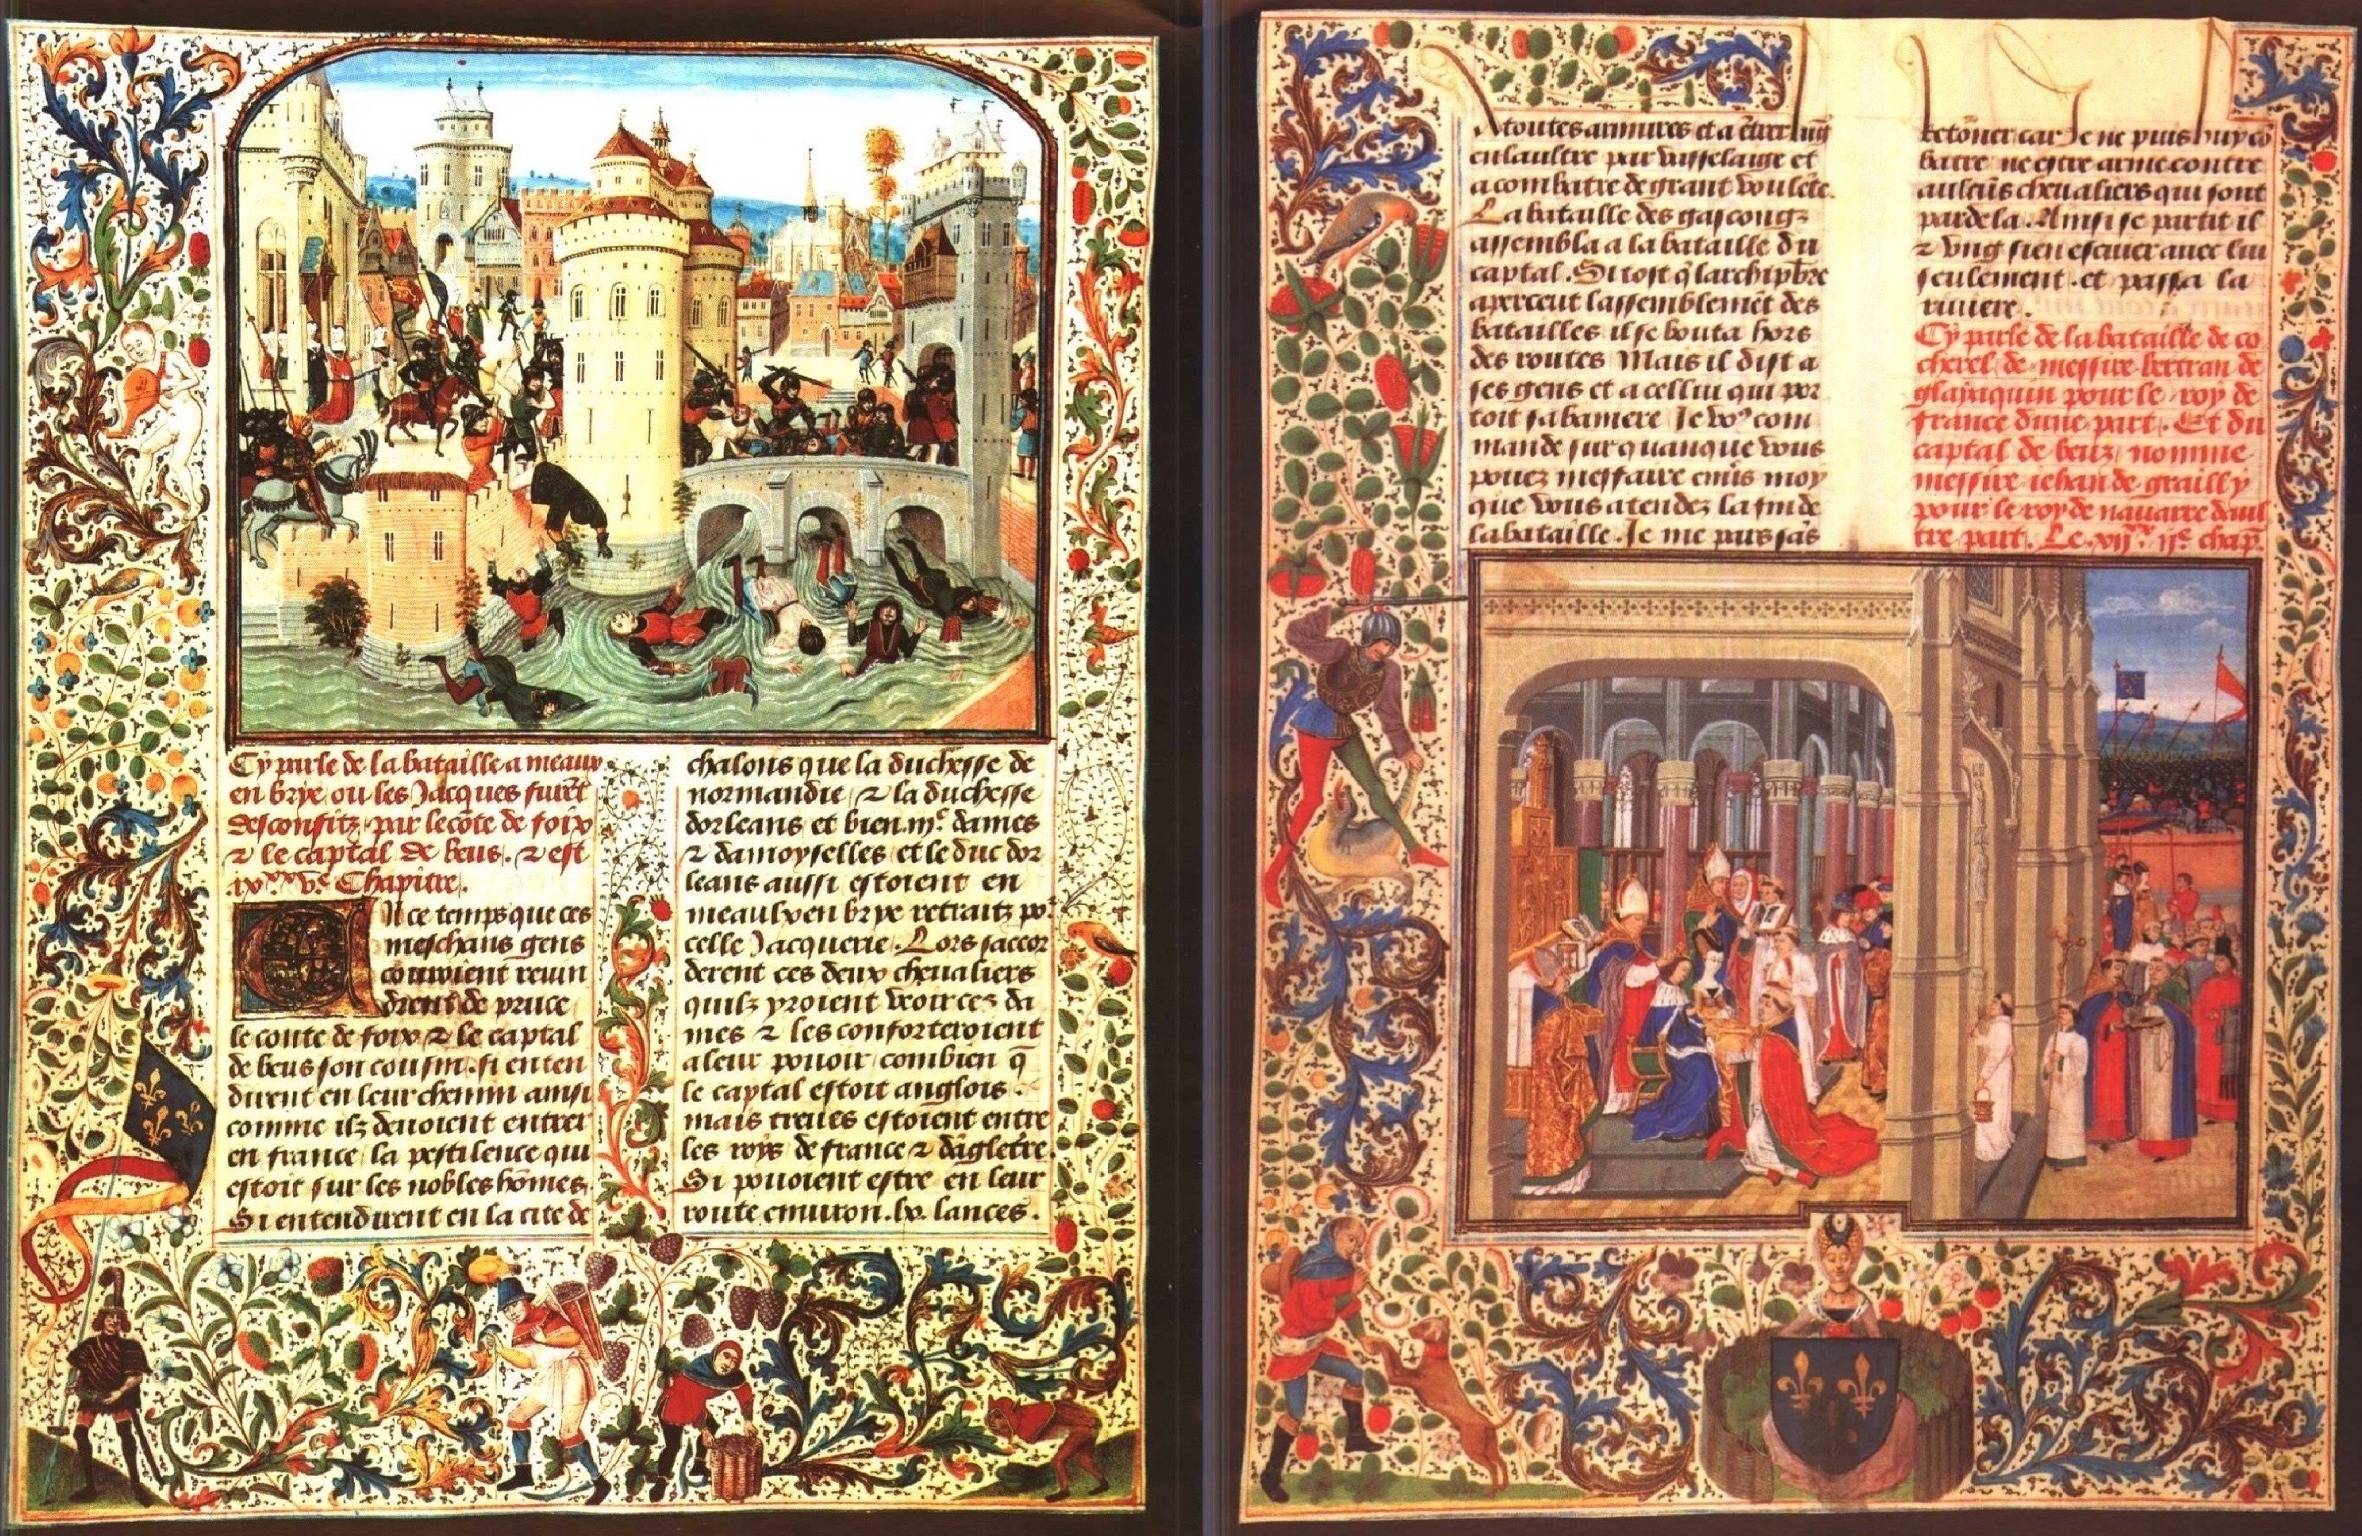 Cy parle de la bataille a meaux
en brye ou les Jacques furēt
desconfitz par le cōte de foix
⁊ le captal de beus. ⁊ est
Chapitre.
En ce temps que ces
meschans gens
couroient revin
drent de pruce
le conte de foix ⁊ le captal
de beus son cousin. si enten
dirent en leur chemin ainsi
comme ilz devoient entrer
en france la pestilence qui
estoit sur les nobles hōmes
Si entendirent en la cite de
chalons que la duchesse de
normandie ⁊ la duchesse
dorleans et bien .iijᶜ. dames
⁊ damoyselles et le duc dor
leans aussi estoient en
meaulx en brye retraitz po²
celle Jacquerie. Lors saccor
derent ces deux chevaliers
quilz yroient veoir ces da
mes ⁊ les conforteroient
a leur povoir combien q̄
le captal estoit anglois.
mais treues estoient entre
les roys de france ⁊ dāgletere.
Si povoient estre en leur
route environ .lx. lances.
toutes armures et a
en laultre par vasselaige et
a combatre de grant voulēte.
La bataille des gascongz
assembla a la bataille du
captal. Si tost q̄ larchiprbre
aperceut lassemblemēt des
batailles il se bouta hors
des routes Mais il dist a
ses gens et a cellui qui por
toit sa baniere Je vo⁹ com
mande sur quanque vous
pouez meffaire envis moy
que vous atendez la fin de
la bataille. Je me pars sās
retōner car Je ne puis huy cō
batre ne estre arme contre
aulcūs chevaliers qui sont
par dela. Ainsi se partit il
⁊ vng sien escuier avec lui
seulement et passa la
riviere.
Cy parle de la bataille de co
cherel de messire bertran de
glayaquin pour le roy de
france dune part. Et du
captal de beuz nomme
messire iehan de grailly
pour le roy de navarre daul
tre part. Le chap